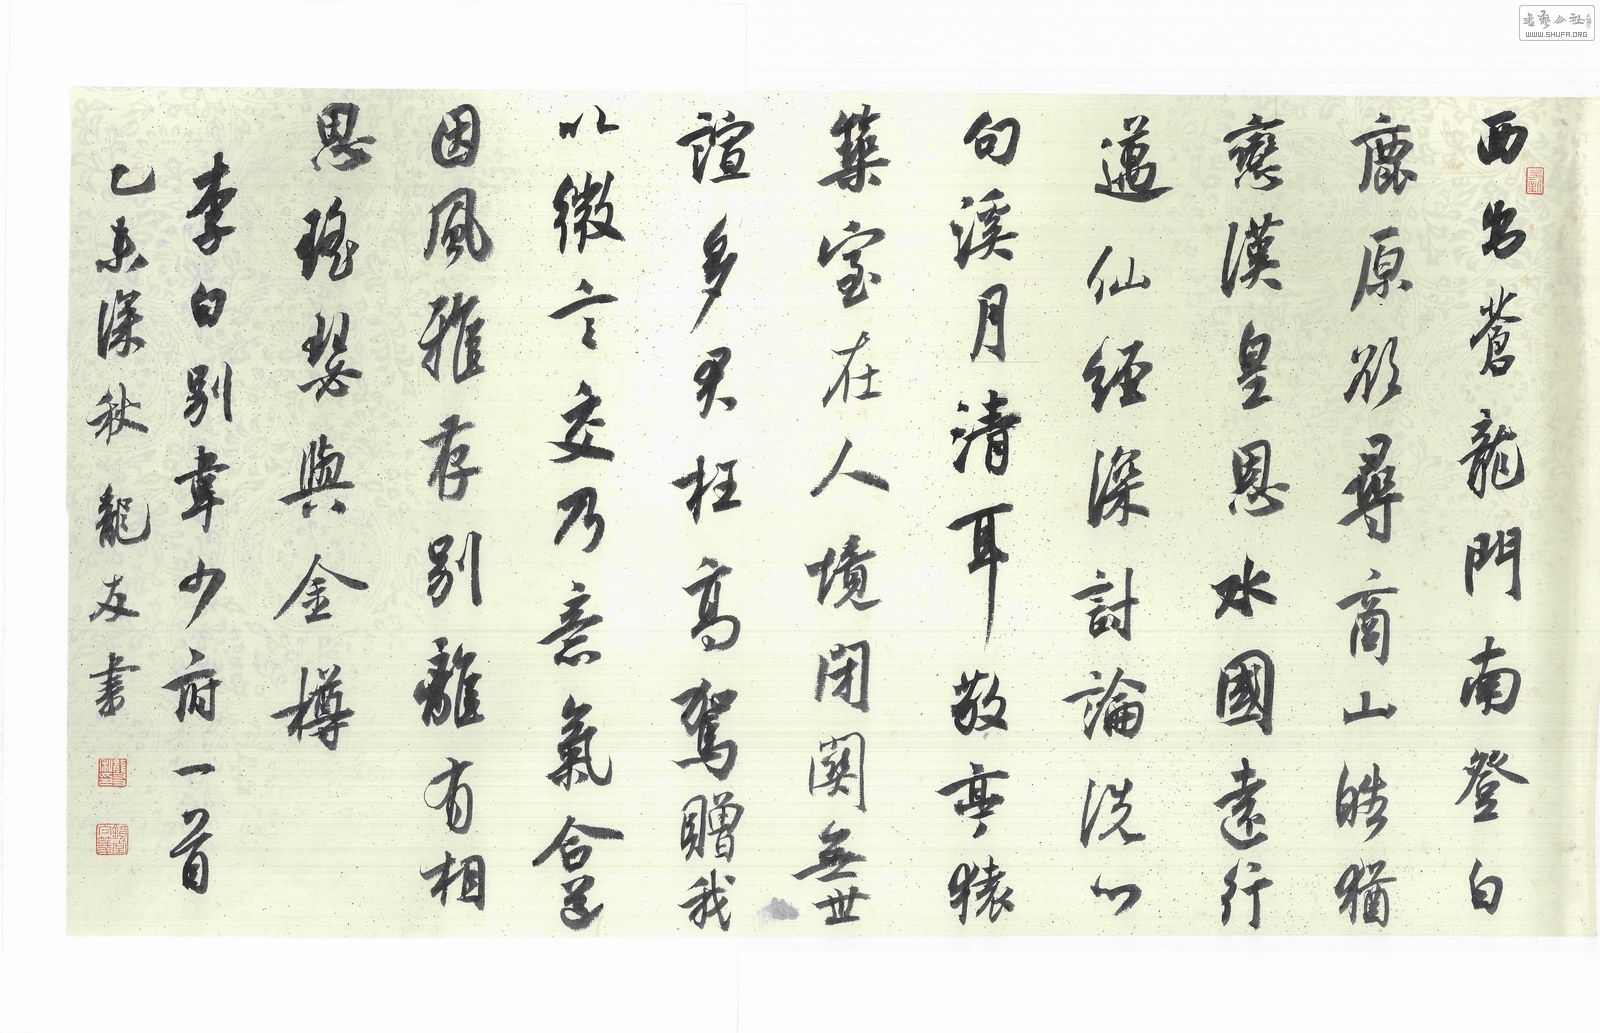 西出蒼龍門南登白
鹿原欲尋商山皓猶
戀漢皇恩水國遠行
邁仙經深討論洗心
句溪月清耳敬亭猿
築室在人境閉關無世
諠多君枉高駕贈我
以微言交乃意氣合道
因風雅存別離有相
思瑤瑟與金樽
李白別韋少府一首
乙未深秋龍友書
書藝公社
WWW.SHUFA.ORG